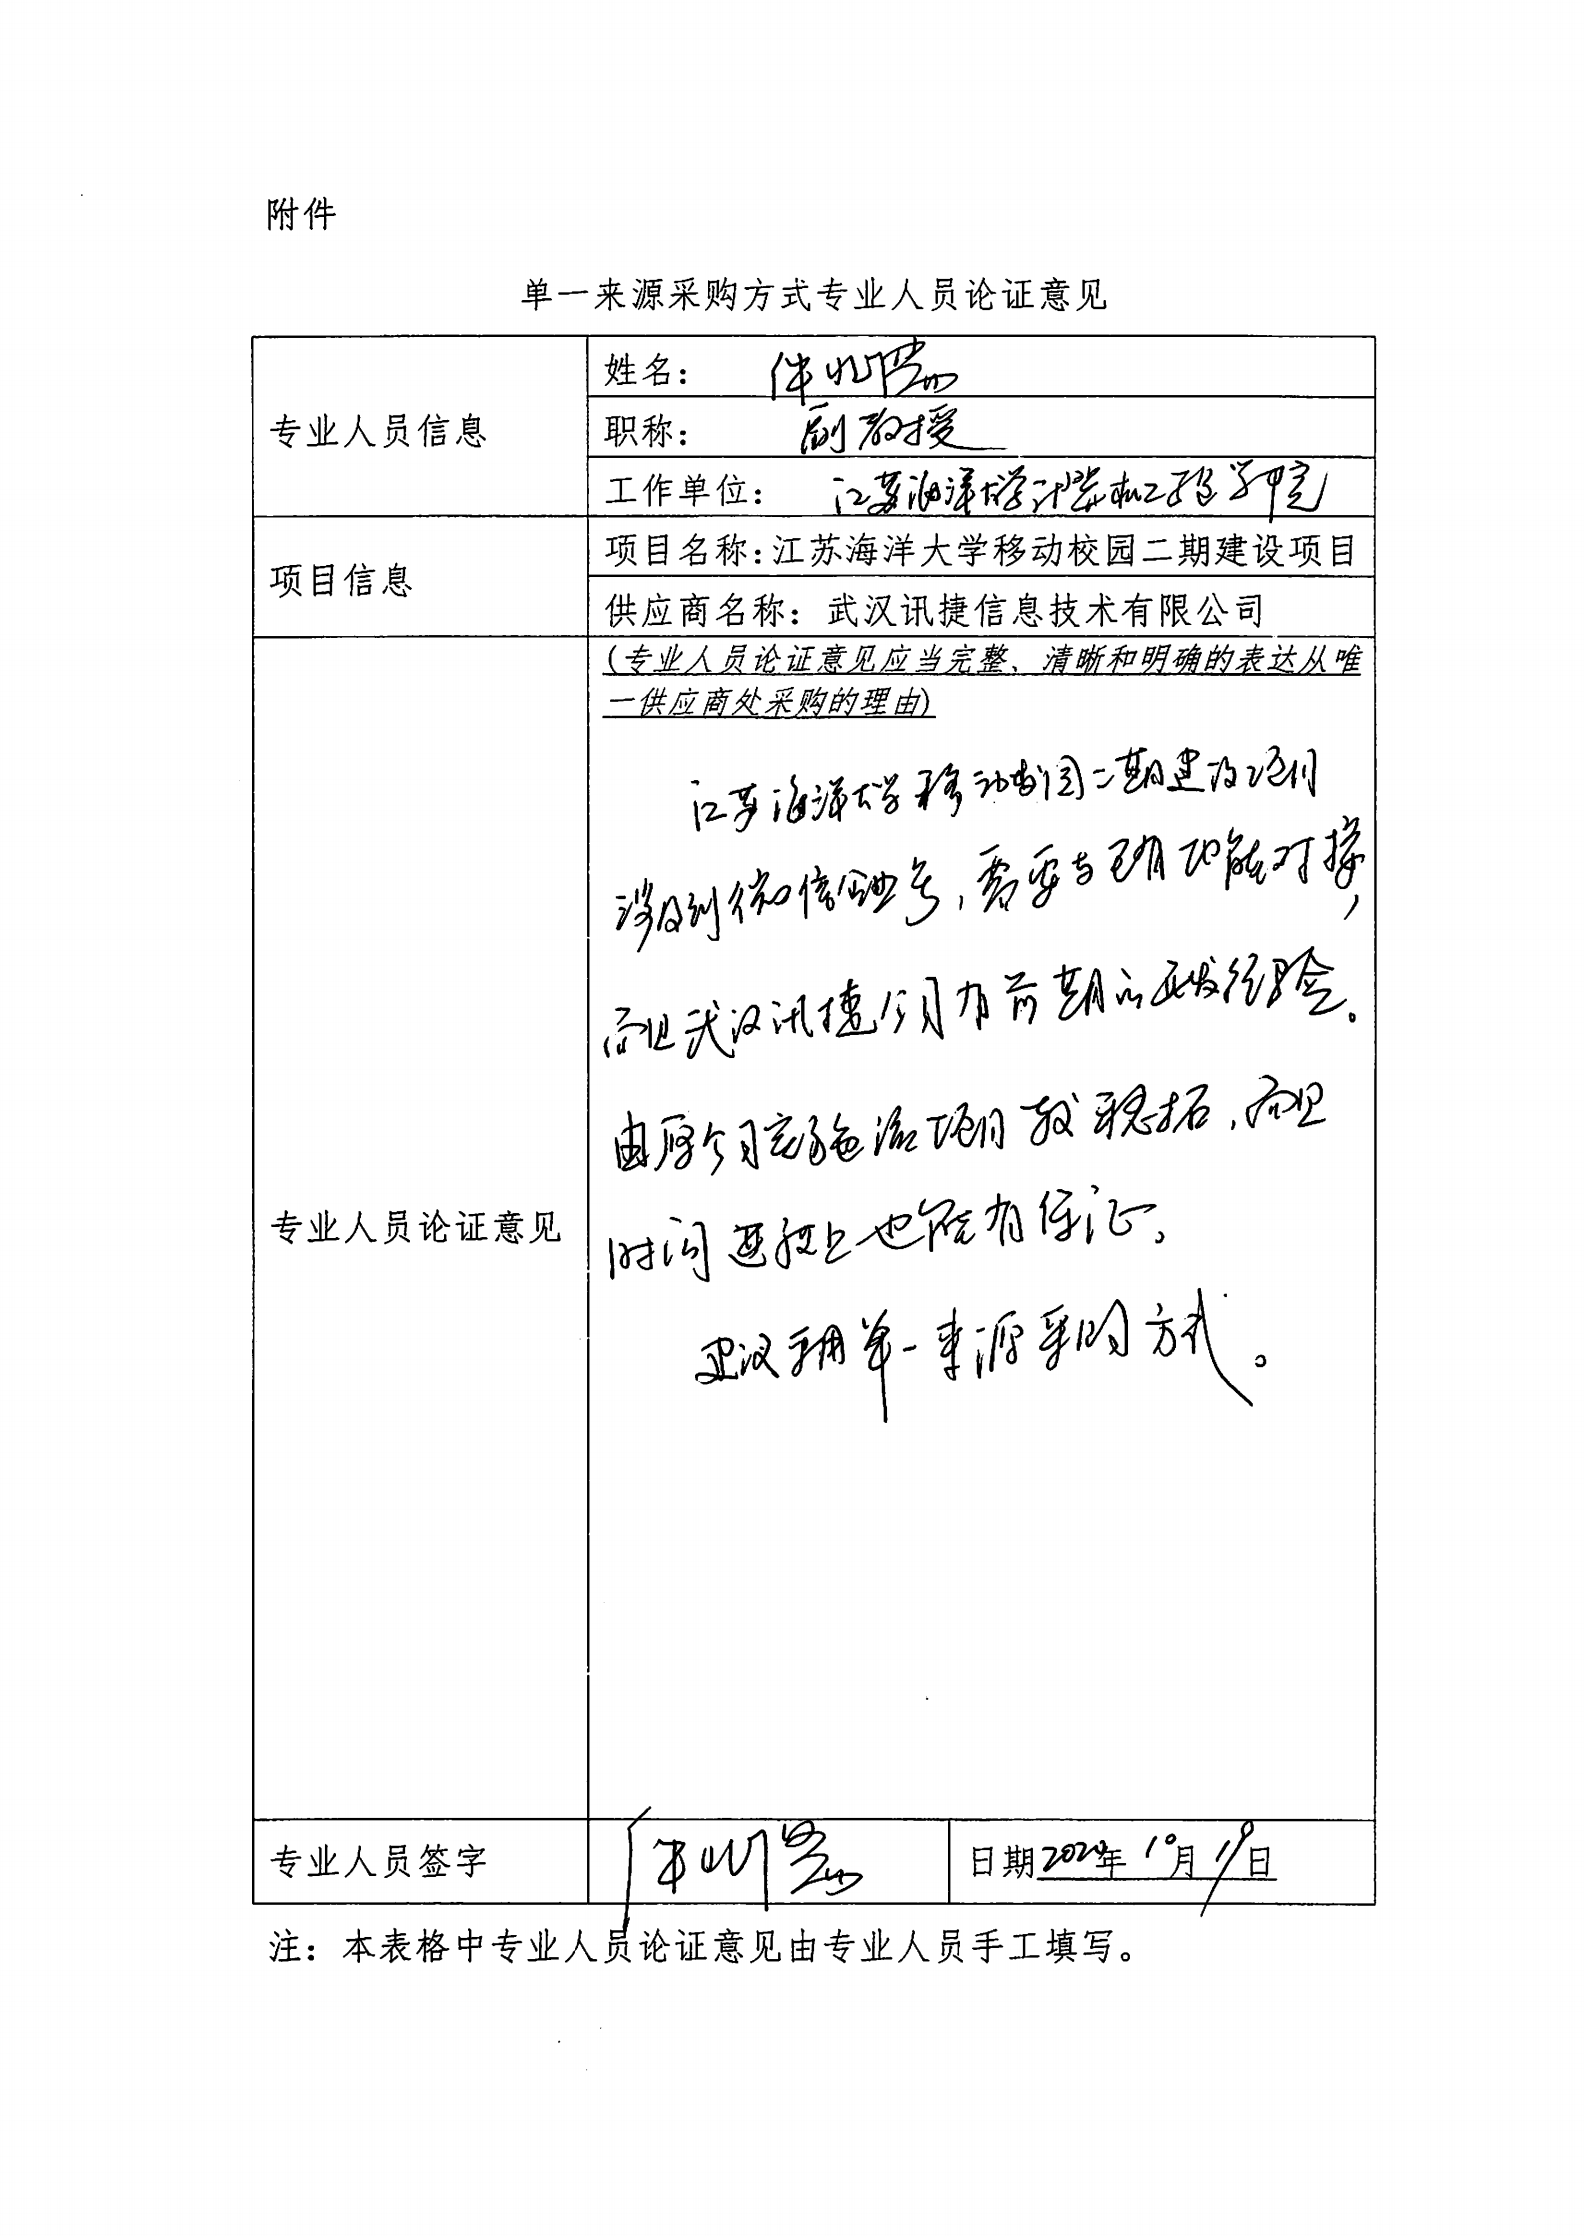 附件
单一来源采购方式专业人员论证意见
专业人员信息
姓名：
职称： 副教授
工作单位： 江苏海洋大学计算机工程学院
项目信息
项目名称：江苏海洋大学移动校园二期建设项目
供应商名称：武汉讯捷信息技术有限公司
专业人员论证意见
(专业人员论证意见应当完整、清晰和明确的表达从唯
一供应商处采购的理由)
江苏海洋大学移动校园二期建设项目
涉及到微信企业号，需要与已有功能对接，
而且武汉讯捷公司有前期的研发经验。
由原公司实施该项目较稳妥，而且
时间进段上也能有保证。
建议采用单一来源采购方式。
专业人员签字
日期2020年10月19日
注：本表格中专业人员论证意见由专业人员手工填写。